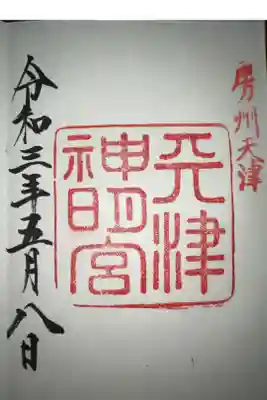 房州天津
天津
神明宮
令和三年五月八日